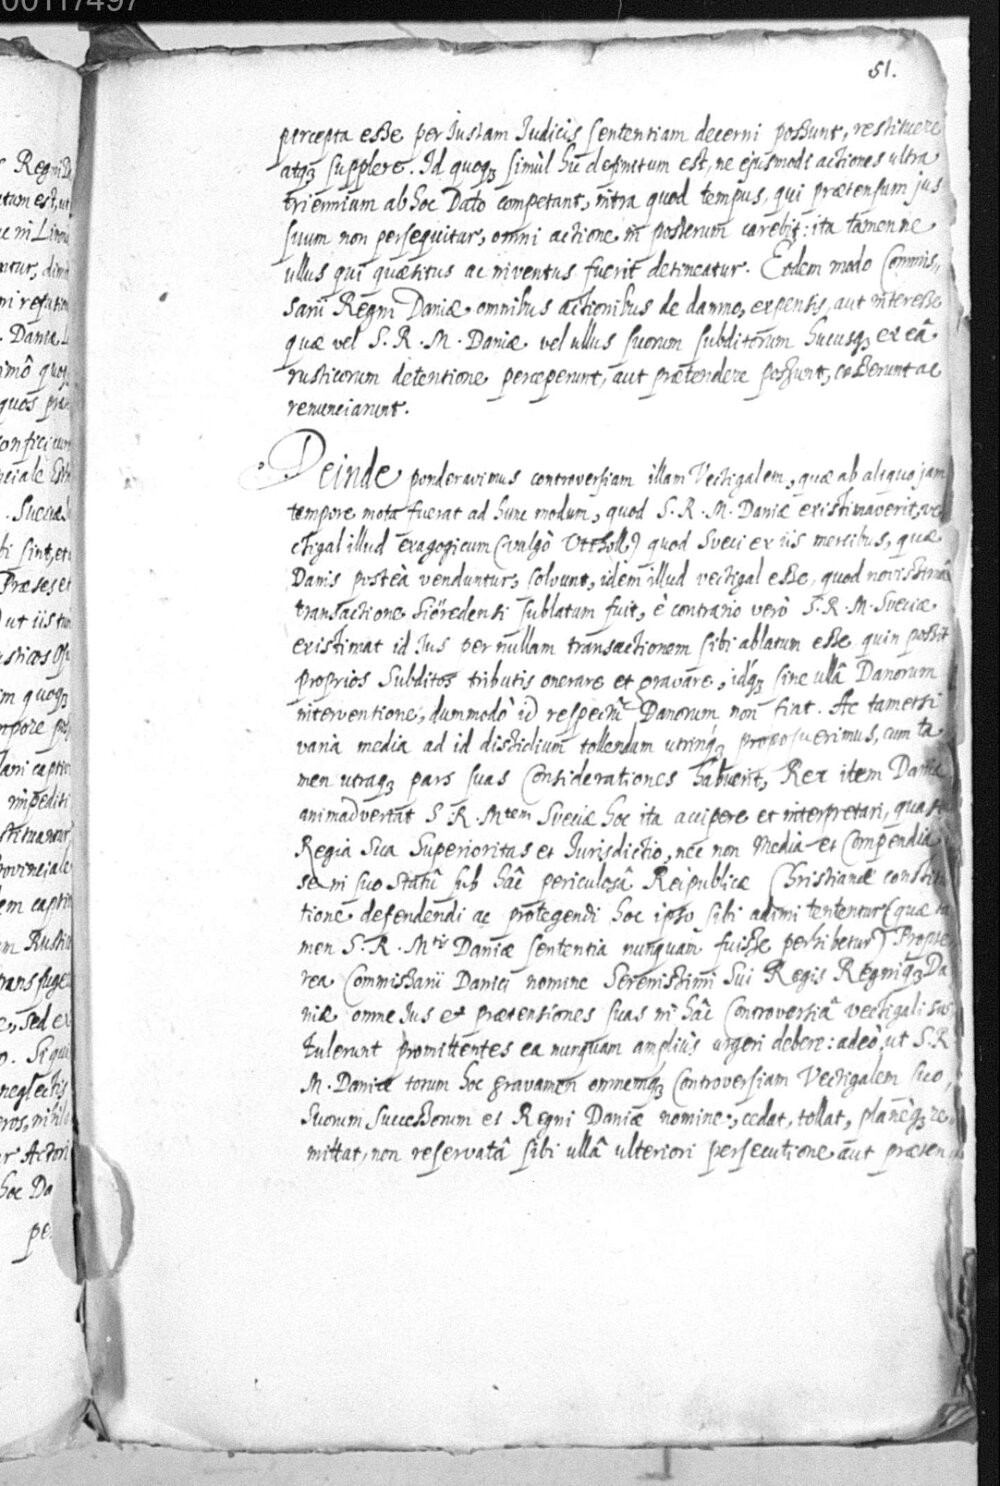 00117497
51.
percepta esse per Justam Judicis sententiam decerni possunt, restituere
atqꝫ supplere. Id quoqꝫ simùl hîc definitum est, ne ejusmodi actiones ultra
triennium ab hoc Dato competant, intra quod tempus, qui prætensum jus
suum non persequitur, omni actione in posterum carebit: ita tamen ne
ullus qui quæsitus ac inventus fuerit detineatur. Eodem modo Commis,,
sarii Regni Daniæ omnibus actionibus de damno, expensis, aut interesse
quæ vel S. R. M. Daniæ vel ullus suorum subditorum hucusqꝫ ex eâ
rusticorum detentione perceperunt, aut prætendere possunt, cesserunt ac
renunciarunt.
Deinde ponderavimus controversiam illam Vectigalem, quæ ab aliquo jam
tempore mota fuerat ad hunc modum, quod S. R. M. Daniæ existimaverit, ve
ctigal illud exagogicum (vulgò Uttholl) quod Sveci ex iis mercibus, quæ
Danis posteà venduntur, solvunt, idem illud vectigal esse, quod novissimâ
transactione Siöredensi sublatum fuit, è contrario verò S. R. M. Sveciæ
existimat id Jus per nullam transactionem sibi ablatum esse quin possit
proprios Subditos tributis onerare et gravare, idqꝫ sine ullâ Danorum
interventione, dummodò id respectu Danorum non fiat. Ac tametsi
varia media ad id distidium tollendum utrinqꝫ proposuerimus, cum ta
men utraqꝫ pars suas Considerationes habuerit, Rex item Daniæ
animadvertat S. R. Mtem Sveciæ hoc ita accipere et interpretari, quasi
Regia Sua Superioritas et Jurisdictio, nec non Media et Compendia
se in suo Statu sub hâc periculosâ Reipublicæ Christianæ constitu
tione defendendi ac protegendi hoc ipso sibi adimi tententur (quæ ta
men S. R. Mtis Daniæ sententia nunquam fuisse perhibetur) Propte
rea Commissarii Danici nomine Serenissimi Sui Regis Regniqꝫ Da
niæ omne Jus et prætensiones suas in hâc Controversiâ vectigali sus,,
tulerunt promittentes ea nunquam ampliùs urgeri debere: adeò, ut S. R.
M. Daniæ totum hoc gravamen omnemqꝫ Controversiam Vectigalem suo,
Suorum Successorum et Regni Daniæ nomine, cedat, tollat, planèqꝫ re,
mittat, non reservatâ sibi ullâ ulteriori persecutione aut præten